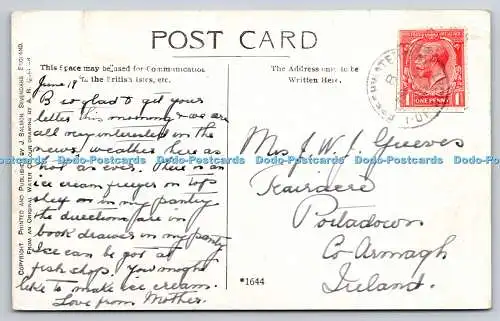 POST CARD
This Space may be used for Communication
to the British Isles, etc.
The Address only to be
Written Here.
June 19
glad to get your
letter this morning & we are
all very interested in the
news, weather here as
hot as ever. There is an
ice cream freezer on top
shelf on in my pantry
the directions are in
book drawer in my pantry
Ice can be got at
fish shops. You might
like to make ice cream.
Love from Mother.
Mrs J. W. J. Greeves
Portadown
Co Armagh
Ireland.
COPYRIGHT. PRINTED AND PUBLISHED BY J. SALMON, SEVENOAKS, ENGLAND.
FROM AN ORIGINAL WATER COLOUR DRAWING BY A. R.
*1644
ONE PENNY
1 1
Dodo-Postcards Dodo-Postcards Dodo-Postcards Dodo-Postcards Dodo-Postcards Dodo-Postcards